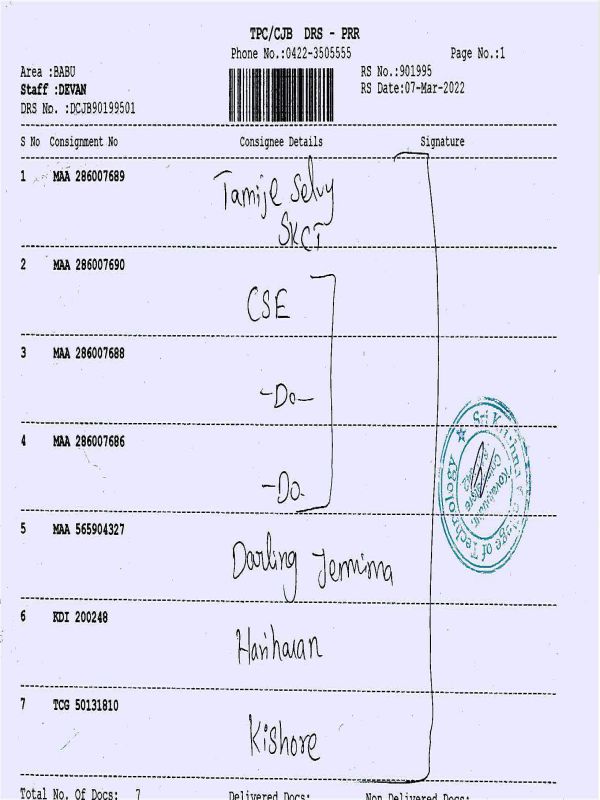 TPC/CJB DRS - PRR
Phone No.:0422-3505555 Page No.:1
Area :BABU RS No.:901995
Staff :DEVAN RS Date:07-Mar-2022
DRS No. :DCJB90199501
S No Consignment No Consignee Details Signature
1 MAA 286007689 Tamije Selvy
SKCT
2 MAA 286007690 CSE
3 MAA 286007688 -Do-
4 MAA 286007686 -Do.
5 MAA 565904327 Darling Jemima
6 KDI 200248 Hariharan
7 TCG 50131810 Kishore
Sri Krishna College of Technology
Total No. Of Docs: 7 Delivered Docs: Non Delivered Docs: